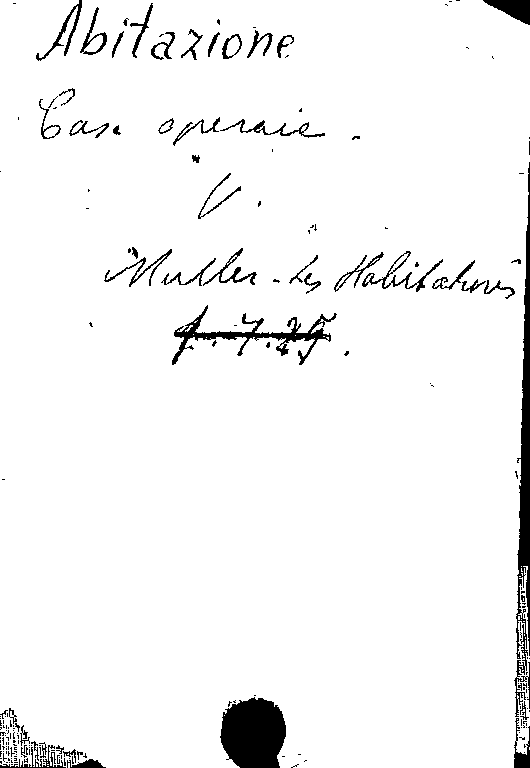 Abitazione
Case operaie.
V.
Muller - Les Habitations
f. 7.25.